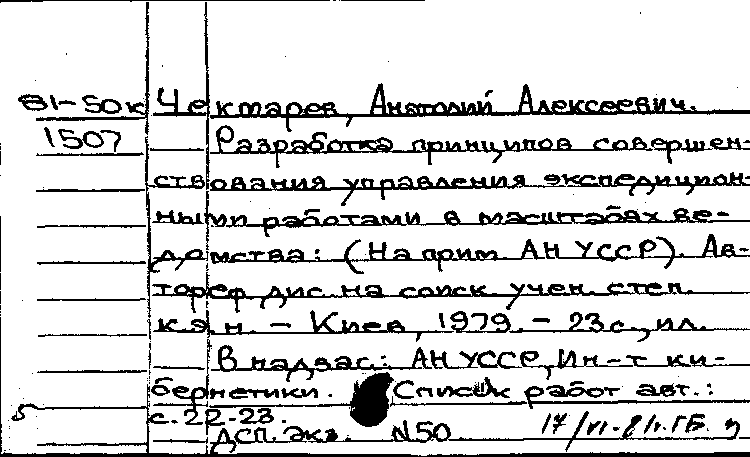 81-50к Чектарев, Анатолий Алексеевич.
1507 Разработка принципов совершен-
ствования управления экспедицион-
ными работами в масштабах ве-
домства: (На прим АН УССР). Ав-
тореф дис. на соиск учен. степ.
к.э.н. - Киев, 1979. - 23с., ил.
В надзаг.: АН УССР, Ин-т ки-
бернетики. Список работ авт.:
5 с. 22-23.
ДСП. Экз. N50 17/VI-81г. ГБ.